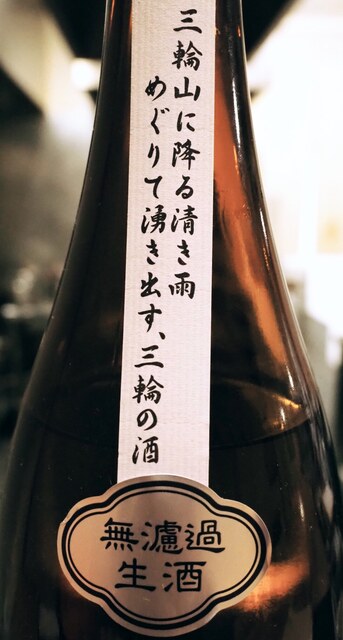 三輪山に降る清き雨
めぐりて湧き出す、三輪の酒
無濾過
生酒